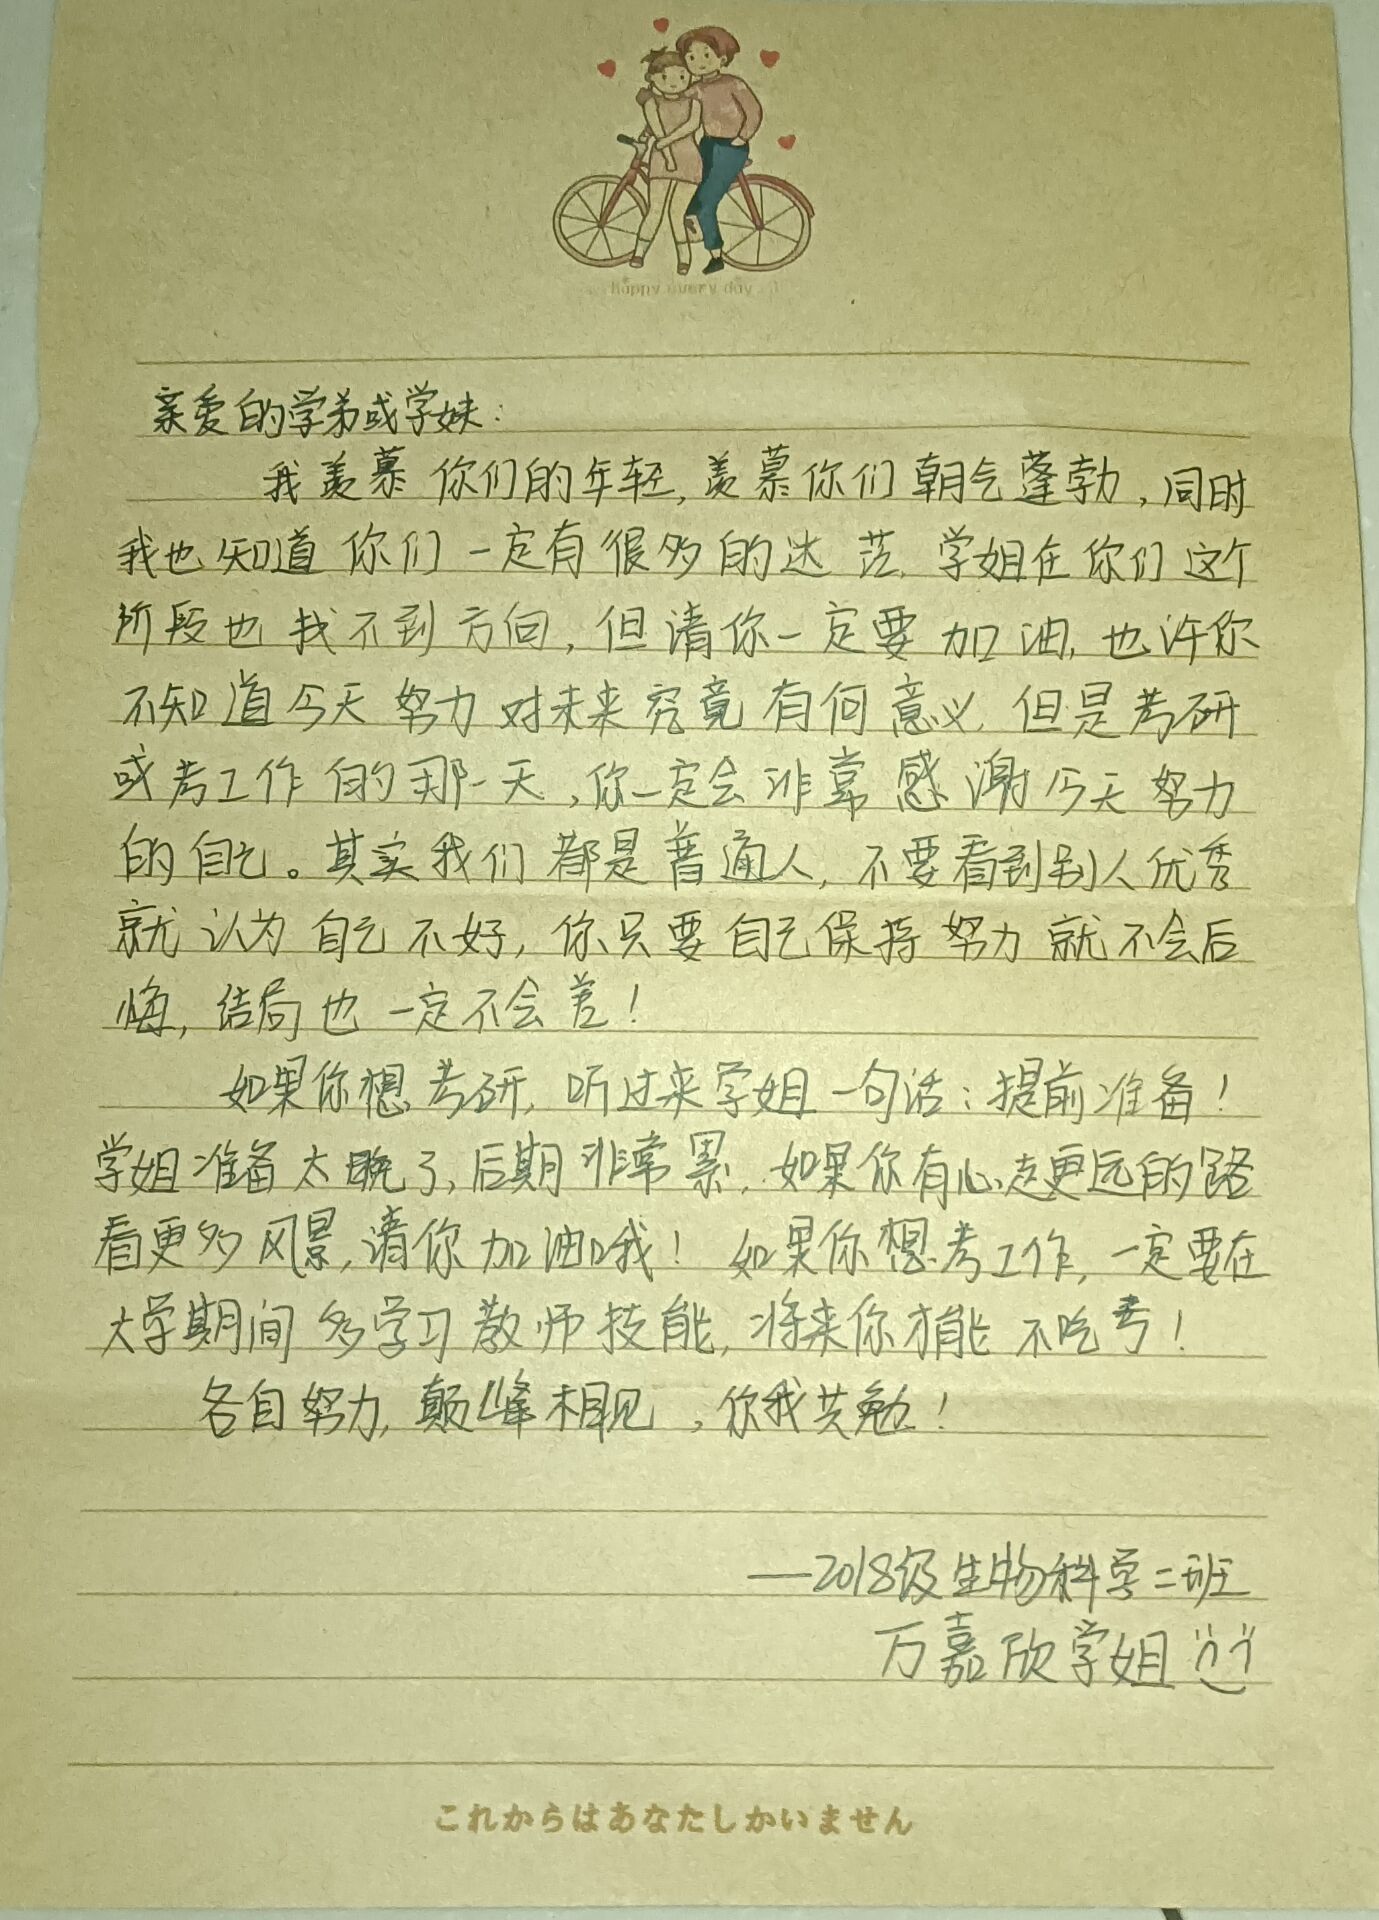 happy every day
亲爱的学弟或学妹：
我羡慕你们的年轻，羡慕你们朝气蓬勃，同时
我也知道你们一定有很多的迷茫，学姐在你们这个
阶段也找不到方向，但请你一定要加油，也许你
不知道今天努力对未来究竟有何意义，但是考研
或考工作的那一天，你一定会非常感谢今天努力
的自己。其实我们都是普通人，不要看到别人优秀
就认为自己不好，你只要自己保持努力就不会后
悔，结局也一定不会差！
如果你想考研，听过来学姐一句话：提前准备！
学姐准备太晚了，后期非常累，如果你有心走更远的路
看更多风景，请你加油哦！如果你想考工作，一定要在
大学期间多学习教师技能，将来你才能不吃亏！
各自努力，颠峰相见，你我共勉！
——2018级生物科学二班
万嘉欣学姐
これからはあなたしかいません